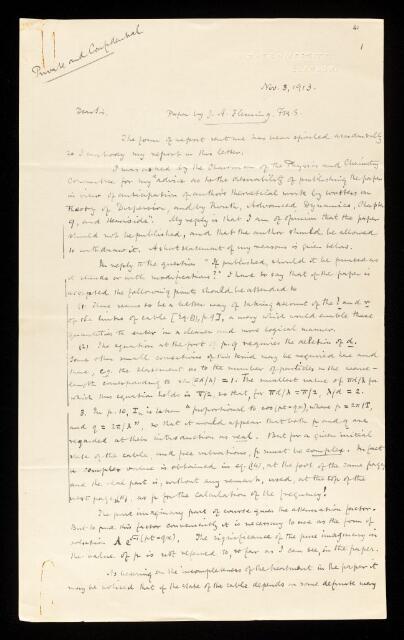 Private and Confidential
1
Nov. 3, 1913.
Dear Sir, Paper by J. A. Fleming, F.R.S.
The form of report sent me has been spoiled accidentally
so I embody my report in this letter.
I was asked by the Chairman of the Physics and Chemistry
Committee for my "advice as to the desirability of publishing the paper
in view of anticipation of author's theoretical work by writers on
theory of Dispersion, and by Routh, Advanced Dynamics, Chapter
9, and Heaviside". My reply is that I am of opinion that the paper
should not be published, and that the author should be allowed
to withdraw it. A short statement of my reasons is given below.
In reply to the question "If published, should it be printed as
it stands or with modifications?" I have to say that if the paper is
accepted the following points should be attended to
(1) There seems to be a better way of taking account of the l and r
of the limbs of cable [Eq. (1), p. 9], a way which would enable these
quantities to enter in a clearer and more logical manner.
(2) The equation at the foot of p. 9 requires the deletion of d.
Some other small corrections of this kind may be required here and
there, e.g. the statement as to the number of particles in the wave-
length corresponding to sin(πd/λ) = 1. The smallest value of πd/λ for
which this equation holds is π/2, so that, for πd/λ = π/2, λ/d = 2.
3. In p. 10, In is taken "proportional to cos(pt-qx), where p = 2π/T,
and q = 2π/λ", so that it would appear that both p and q are
regarded at their introduction as real. But for a given initial
state of the cable, and free vibrations, p must be complex. In fact
a complex value is obtained in eq. (4), at the foot of the same page,
and the real part is, without any remark, used, at the top of the
next page, as p for the calculation of the frequency!
The pure imaginary part of course gives the attenuation factor.
But to find this factor conveniently it is necessary to use as the form of
solution The significance of the pure imaginary in
the value of p is not referred to, so far as I can see, in the paper.
As bearing on the incompleteness of the treatment in the paper it
may be noticed that if the state of the cable depends in some definite way